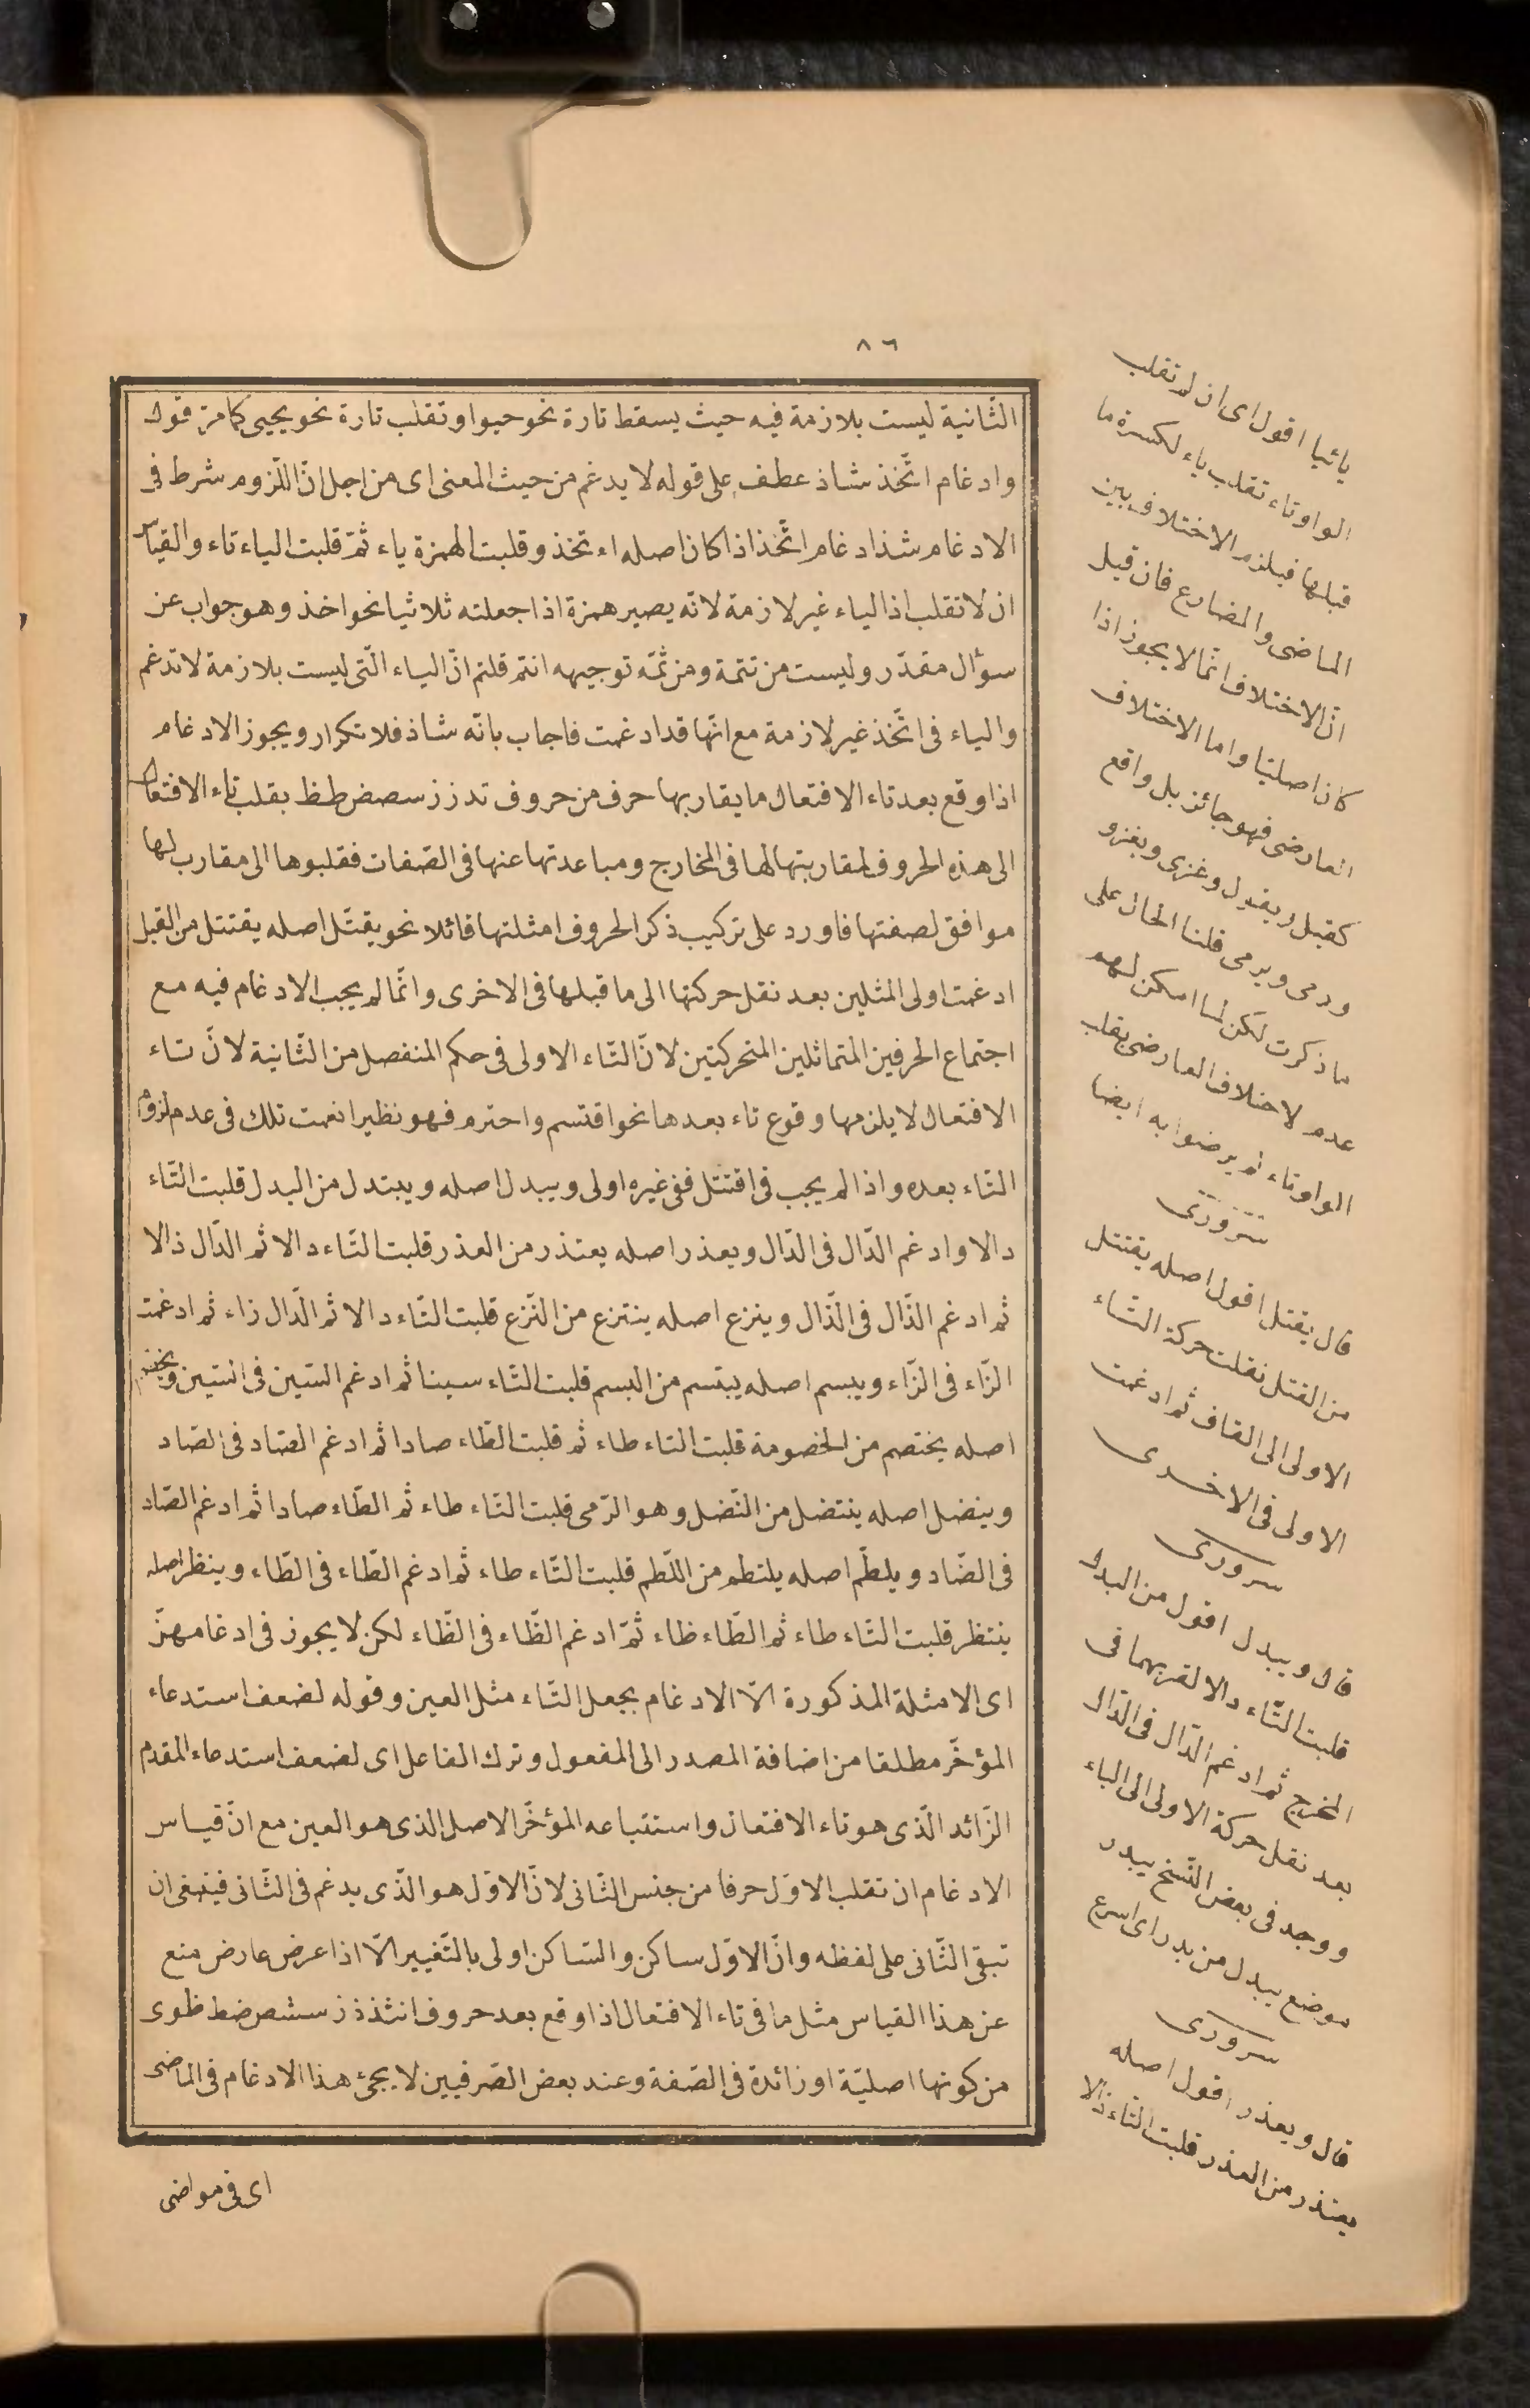 ٨٦
الثّانية ليست بلازمة فيه حيث يسقط تارة نحو حيوا وتقلب تارة نحو يحيى كما مرّ قوله
وادغام اتّخذ شاذ عطف على قوله لا يدغم من حيث المعنى اى من اجل انّ اللّزوم شرط فى
الادغام شذ ادغام اتّخذ اذا كان اصله اءتخذ وقلبت الهمزة ياء ثمّ قلبت الياء تاء والقياس
ان لا تقلب اذ الياء غير لازمة لانّه يصير همزة اذا جعلته ثلاثيا نحو اخذ وهو جواب عن
سؤال مقدّر وليست من تتمة ومن ثمّه توجيهه انتم قلتم انّ الياء الّتى ليست بلازمة لا تدغم
والياء فى اتّخذ غير لازمة مع انّها قد ادغمت فاجاب بانّه شاذ فلا تكرار ويجوز الادغام
اذا وقع بعد تاء الافتعال ما يقاربها حرف من حروف تدذز سصض طظ بقلب تاء الافتعال
الى هذه الحروف لمقاربتها لها فى المخارج ومباعدتها عنها فى الصّفات فقلبوها الى مقارب لها
موافق لصفتها فاورد على تركيب ذكر الحروف امثلتها قائلا نحو يقتّل اصله يقتتل من القتل
ادغمت اولى المثلين بعد نقل حركتها الى ما قبلها فى الاخرى وانّما لم يجب الادغام فيه مع
اجتماع الحرفين المتماثلين المتحركتين لانّ التّاء الاولى فى حكم المنفصل من الثّانية لانّ تاء
الافتعال لا يلزمها وقوع تاء بعدها نحو اقتسم واحترم فهو نظير انعمت تلك فى عدم لزوم
التّاء بعده واذا لم يجب فى اقتتل ففى غيره اولى ويبدل اصله ويبتدل من البدل قلبت التّاء
دالا وادغم الدّال فى الدّال ويعذر اصله يعتذر من العذر قلبت التّاء دالا ثم الدّال ذالا
ثم ادغم الذّال فى الذّال وينزع اصله ينتزع من النّزع قلبت التّاء دالا ثم الدّال زاء ثم ادغمت
الزّاء فى الزّاء ويبسم اصله يبتسم من البسم قلبت التّاء سينا ثم ادغم السّين فى السّين ويخصم
اصله يختصم من الخصومة قلبت التاء طاء ثم قلبت الطّاء صادا ثم ادغم الصّاد فى الصّاد
وينضل اصله ينتضل من النّضل وهو الرّمى قلبت التّاء طاء ثم الطّاء ضادا ثم ادغم الضّاد
فى الضّاد ويلطّم اصله يلتطم من اللّطم قلبت التّاء طاء ثم ادغم الطّاء فى الطّاء وينظر اصله
ينتظر قلبت التّاء طاء ثم الطّاء ظاء ثمّ ادغم الظّاء فى الظّاء لكن لا يجوز فى ادغامهنّ
اى الامثلة المذكورة الّا الادغام بجعل التّاء مثل العين وقوله لضعف استدعاء
المؤخّر مطلقا من اضافة المصدر الى المفعول وترك الفاعل اى لضعف استدعاء المقدم
الزّائد الّذى هو تاء الافتعال واستتباعه المؤخّر الاصل الذى هو العين مع انّ قياس
الادغام ان تقلب الاوّل حرفا من جنس الثّانى لانّ الاوّل هو الّذى يدغم فى الثّانى فينبغى ان
تبقى الثّانى على لفظه وانّ الاوّل ساكن والسّاكن اولى بالتّغيير الّا اذا عرض عارض منع
عن هذا القياس مثل ما فى تاء الافتعال اذا وقع بعد حروف اتثدذز سشصضطظوى
من كونها اصليّة او زائدة فى الصّفة وعند بعض الصّرفيين لا يجئ هذا الادغام فى الماضى
اى فى مواضى
يائيا اقول اى ان لم تقلب
الواو تاء تقلب ياء لكسرة ما
قبلها فيلزم الاختلاف بين
الماضى والمضارع فان قيل
انّ الاختلاف انّما لا يجوز اذا
كان اصليّا واما الاختلاف
العارضى فهو جائز بل واقع
كقيل ويقول وغزى ويغزو
ورمى ويرمى قلنا الحال على
ما ذكرت لكن لما امكن لهم
عدم لاختلاف العارضى بقلب
الواو تاء لم يرضوا به ايضا
سرورى
قال يقتل اقول اصله يقتتل
من القتل نقلت حركة التّاء
الاولى الى القاف ثم ادغمت
الاولى فى الاخرى
سرورى
قال ويبدل اقول من البدل
قلبت التّاء دالا لقربهما فى
المخرج ثم ادغم الدّال فى الدّال
بعد نقل حركة الاولى الى الباء
ووجد فى بعض النّسخ يبدر
موضع يبدل من بدر اى اسرع
سرورى
قال ويعذر اقول اصله
يعتذر من العذر قلبت التّاء ذالا